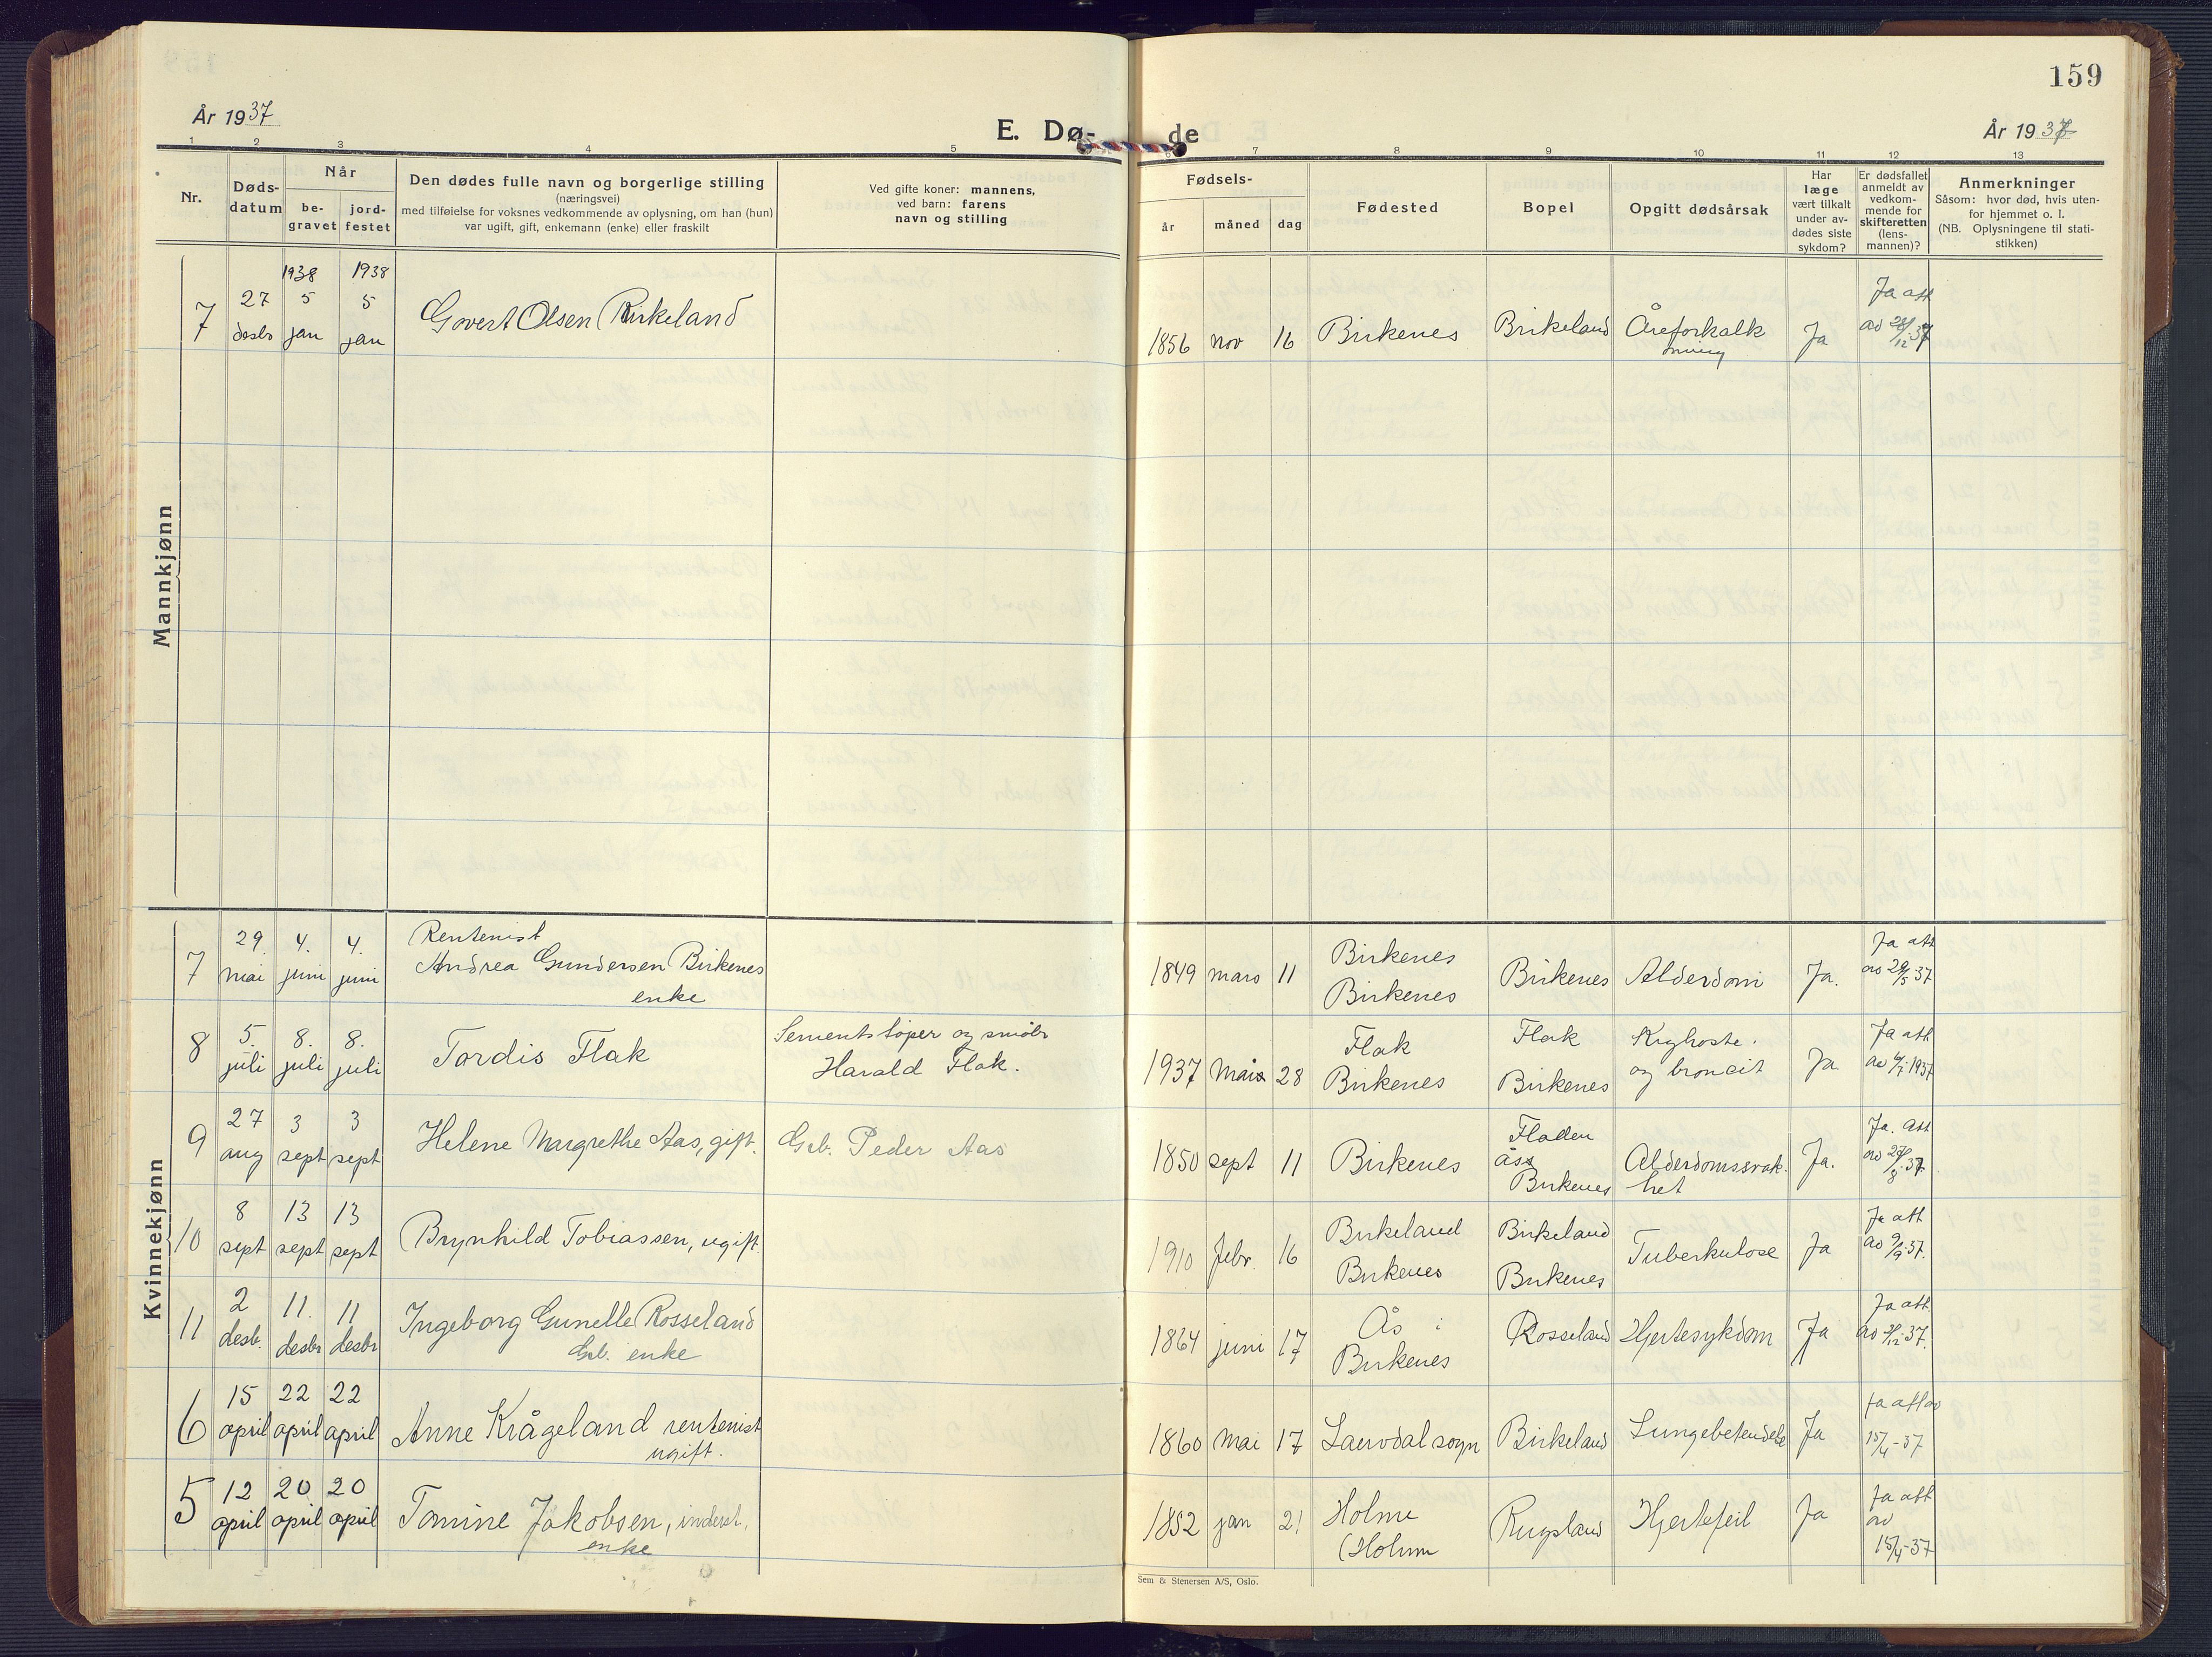 159
År 1937
E. Dø-
de
År 1937
1 2 3 4 5 6 7 8 9 10 11 12 13
Nr.
Døds-
datum
Når
be-
gravet
jord-
festet
Den dødes fulle navn og borgerlige stilling
(næringsvei)
med tilføielse for voksnes vedkommende av oplysning, om han (hun)
var ugift, gift, enkemann (enke) eller fraskilt
Ved gifte koner: mannens,
ved barn: farens
navn og stilling
Fødsels-
år
måned
dag
Fødested
Bopel
Opgitt dødsårsak
Har
læge
vært tilkalt
under av-
dødes siste
sykdom?
Er dødsfallet
anmeldt av
vedkom-
mende for
skifteretten
(lens-
mannen)?
Anmerkninger
Såsom: hvor død, hvis uten-
for hjemmet o. l.
(NB. Oplysningene til stati-
stikken)
Mannkjønn
7
27
desbr
1938
5
jan
1938
5
jan
Govert Olsen Birkeland
1856
nov
16
Birkenes
Birkeland
Åreforkalk
ning
Ja
Ja att
av 28/12 37
Kvinnekjønn
7
29
mai
4.
juni
4.
juni
Rentenist
Andrea Gundersen Birkenes
enke
1849
mars
11
Birkenes
Birkenes
Birkenes
Alderdom
Ja.
Ja att
av 29/5 37
8
5.
juli
8.
juli
8.
juli
Tordis Flak
Sementstøper og småbr
Harald Flak.
1937
Mai
28
Flak
Birkenes
Flak
Birkenes
Kighoste
og broncit
Ja
Ja att
av 6/7 1937
9
27
aug
3
sept
3
sept
Helene Margrethe Aas, gift.
Grb. Peder Aas
1850
sept
11
Birkenes
Fladen
ås
Birkenes
Alderdomssvak-
het
Ja.
Ja. att
av 28/8 37
10
8
sept
13
sept
13
sept
Brynhild Tobiassen, ugift.
1910
febr.
16
Birkeland
Birkenes
Birkeland
Birkenes
Tuberkulose
Ja
Ja att
av 9/9 37.
11
2
desb.
11.
desbr
11
desbr
Ingeborg Gunelle Rosseland
Grb. enke
1864
juni
17
Ås i
Birkenes
Rosseland
Hjertesykdom
Ja
Ja att.
av 3/12 37.
6
15
april
22
april
22
april
Anne Krågeland rentenist
ugift.
1860
Mai
17
Laurdal sogn
Birkeland
Lungebetendelse
Ja
Ja att av
15/4-37
5
12
april
20
april
20
april
Tomine Jakobsen, inderst,
enke
1852
jan
21
Holme
(Holum
Rugsland
Hjertefeil
Ja
Ja att
av
15/4-37
Sem & Stenersen A/S, Oslo.